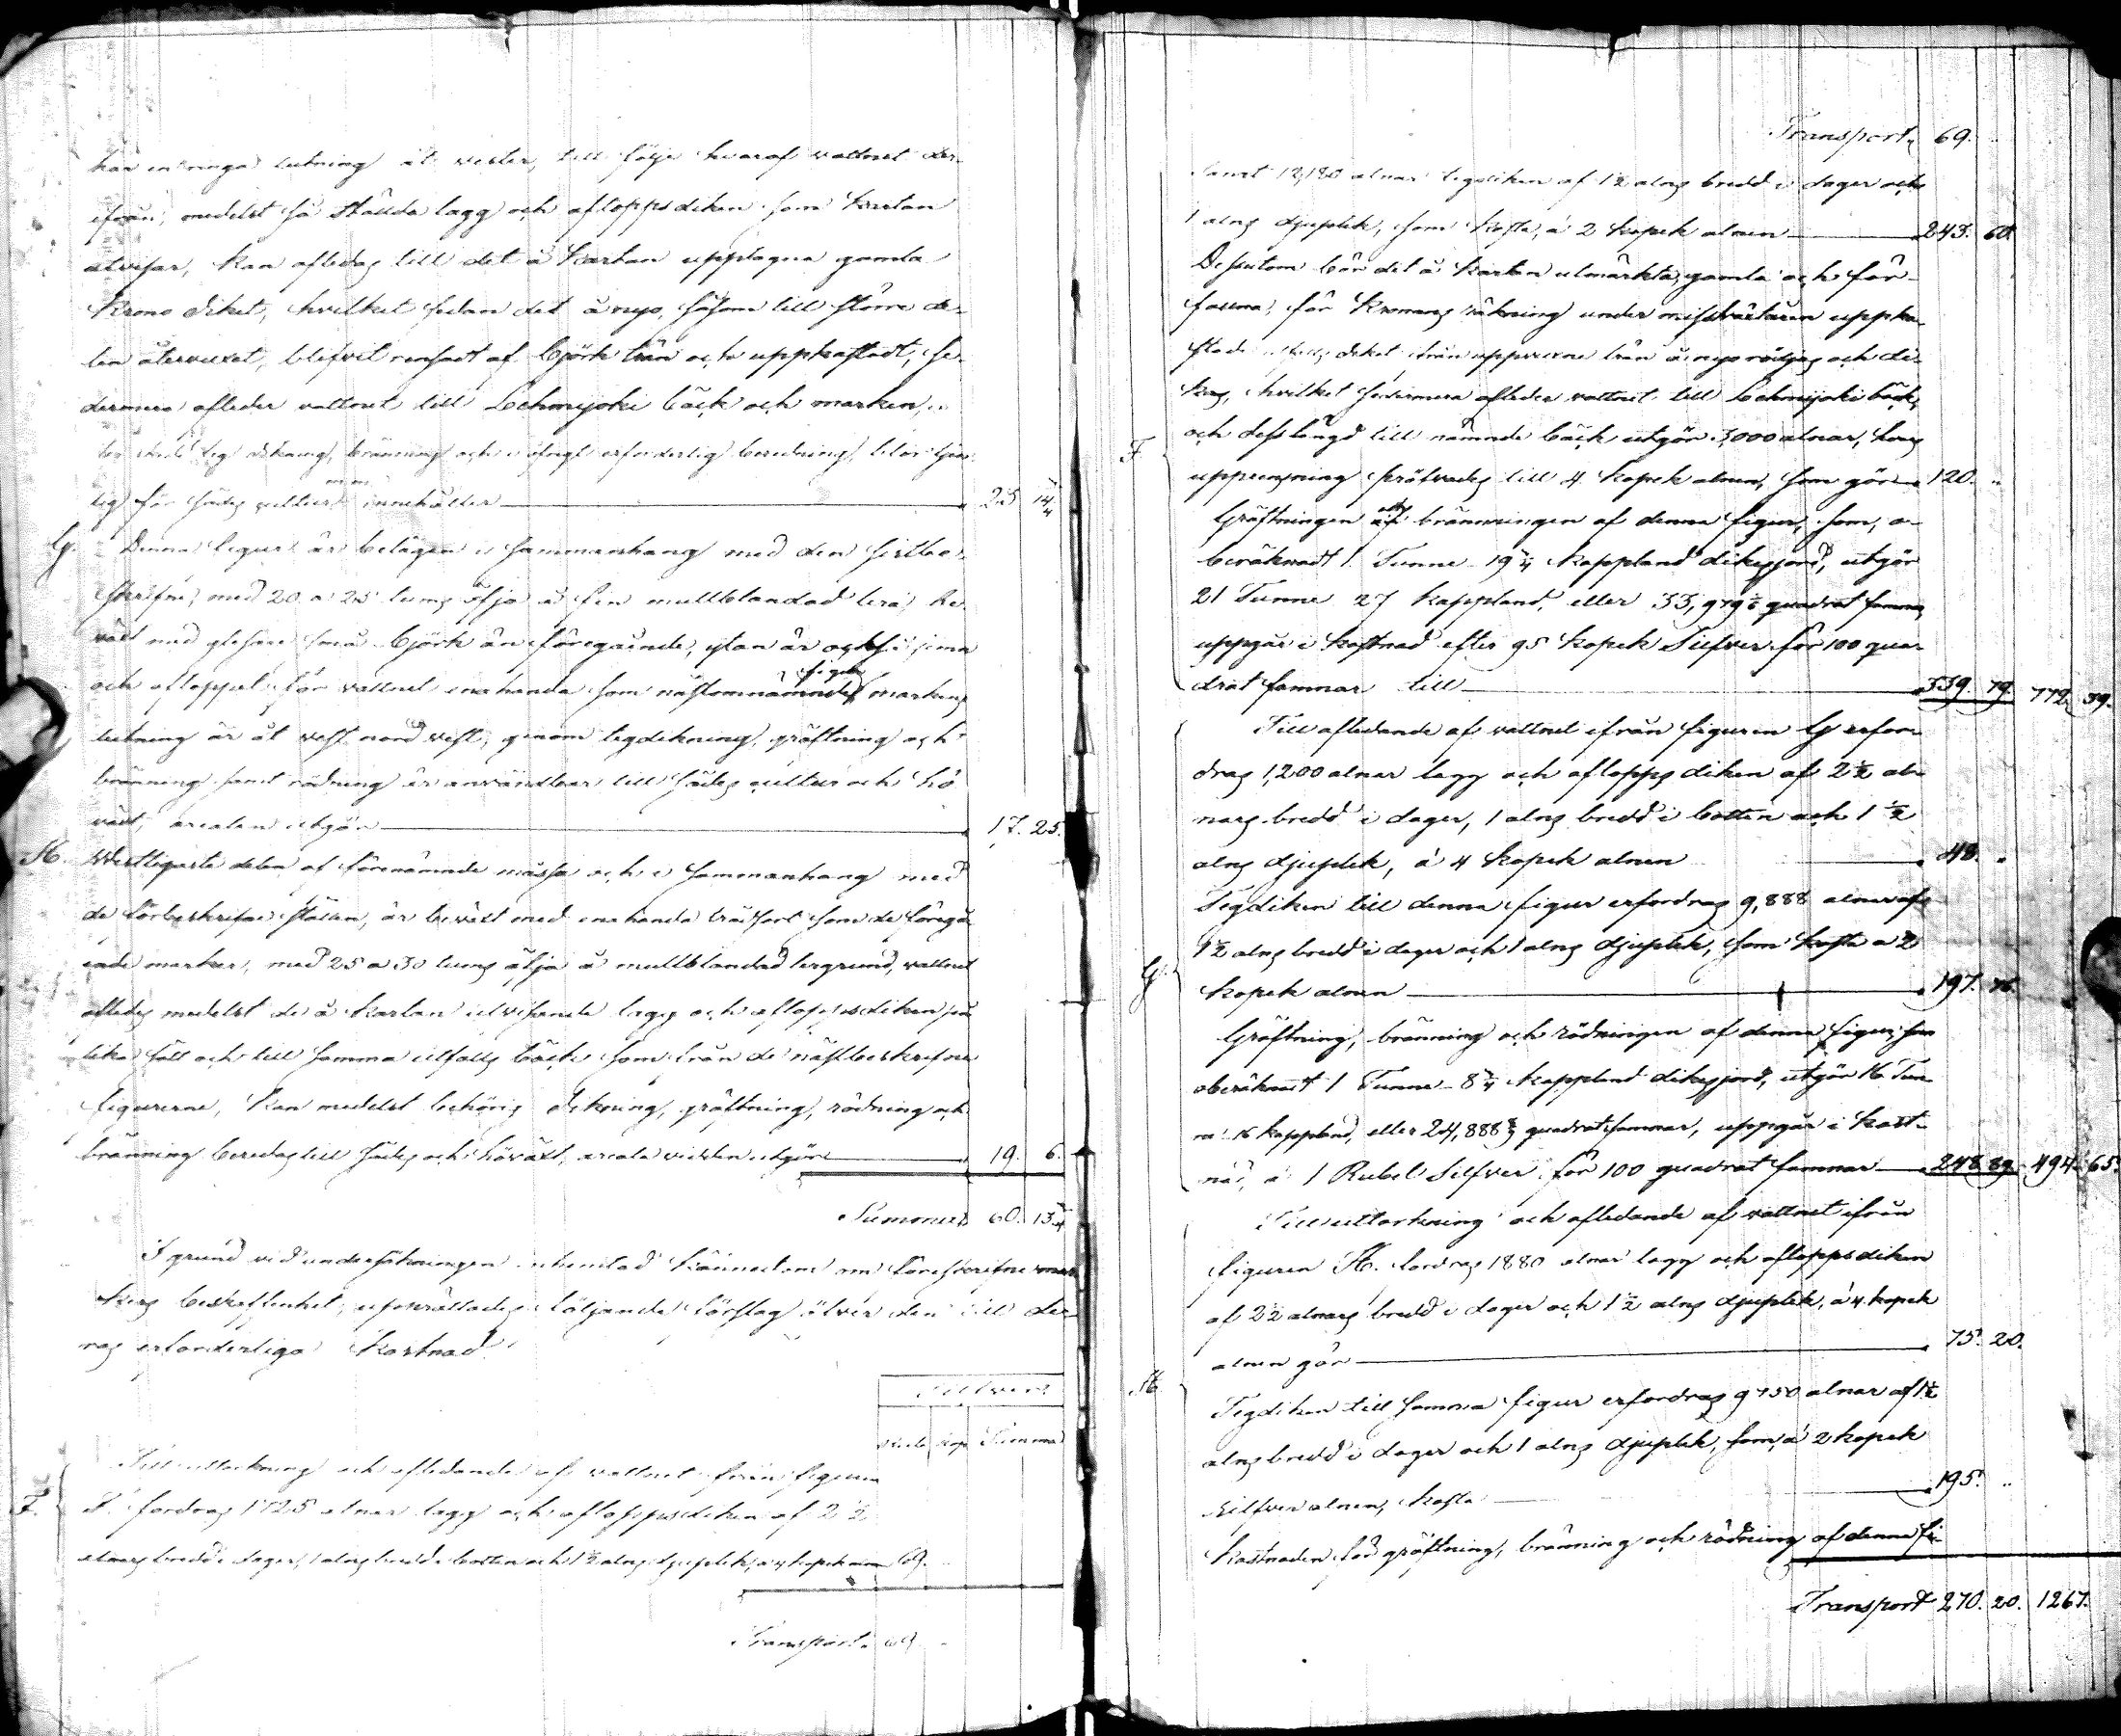 har en ringa lutning åt vester, till följe hvaraf vattnet der-
ifrån, medelst så stälde lagg och afloppsdiken som Kartan
utvisar, kan afledas till det å Kartan upptagna gamla
Krono diket, hvilket sedan det å nyo, såsom till större de-
len återvuxet, blifvit rensadt af björk trän och uppkastadt, se-
dermera afleder vattnet till Lehmijoki bäck och marken,
teg dikning, bränning och i öfrigt erforderlig beredning, blir tjen-
lig för sädes culture innehåller 25 14 3/4
G. Denna figur är belägen i sammanhang med den sistbe-
skrifne, med 20 a 25 tums äfja å fin mullblandad lera, be-
växt med glesare små björk än föregående, ytan är också jemn
och aflopp för vattnet enahanda som nästomnämnde figur markens
lutning är åt vest nord vest, genom tegdikning, gräftning och
bränning samt rödning är användbar till sädes cultur och hö
växt, arealen utgör 17. 25.
H. Westligaste delen af förenämnde måssa och i sammanhang med
de förbeskrifne ställen, är beväxt med enahanda trädsort som de föregå
ende marker, med 25 a 30 tums äfja å mullblandad lergrund, vattnet
afledes medelst de å kartan utvisande lagg och afloppsdiken på
lika sätt och till samma utfalls bäck som från de nästbeskrifne
figurerne, kan medelst behörig dikning, gräftning, rödning och
bränning beredas till sädes och höväxt, areala vidden utgör 19. 6.
Summa 60. 13 3/4
I grund vid undersökningen inhemtad kännedom om föreskrifne mar-
kers beskaffenhet, upprättades följande förslag öfver den till de-
ras erforderliga Kostnad.
Silfver
Rub. Kop. Summa
Till uttorkning och afledande af vattnet från figuren
F. F. fordras 1725 alnar lagg och afloppsdiken af 2 1/2
alnars bredd i dager, 1 alns bredd i botten och 1 1/2 alns djuplek, a 4 kopek alnen 69.
Transport 69
Transport 69.
Samt 12,180 alnar tegdiken af 1 1/2 alns bredd i dager och
1 alns djuplek, som kosta, á 2 kopek alnen 243. 60.
Dessutom bör det å Kartan utmärkta, gamla och för-
fallna, för Kronans räkning under missväxtåren uppka-
stade diket från uppvuxne trän å nyo rödjas och di-
kas, hvilket sedermera afleder vattnet till Lehmijoki bäck,
F. och dess längd till nämnde bäck utgör 3,000 alnar, hvars
upprensning pröfvades till 4 kopek alnen, som gör 120. "
Gräftningen och bränningen af denna figur, som, o-
beräknadt 1 Tunne 19 3/4 Kappland dikesjord, utgör
21 Tunne 27 Kappland, eller 33,979 1/2 quadrat famnar,
uppgår i kostnad efter 95 kopek Silfver för 100 qua-
drat famnar till 339. 79. 772. 39.
Till afledande af vattnet ifrån figuren G erfor-
dras 1,200 alnar lagg och aflopps diken af 2 1/2 al-
nars bredd i dager, 1 alns bredd i botten och 1 1/2
alns djuplek, á 4 kopek alnen 48. "
Tegdiken till denna figur erfordras 9,888 alnar af
1 1/2 alns bredd i dager och 1 alns djuplek, som kosta a 2
G. kopek alnen 197. 76.
Gräftning, bränning och rödningen af denna figur, som
oberäknadt 1 Tunne 8 3/4 Kappland dikesjord, utgör 16 Tun-
na 16 Kappland, eller 24,888 quadrat famnar, uppgår i kost-
nad, á 1 Rubel Silfver för 100 quadrat famnar 248 89. 494. 65.
Till uttorkning och afledande af vattnet ifrån
figuren H. fordras 1880 alnar lagg och afloppsdiken
af 2 1/2 alnars bredd i dager och 1 1/2 alns djuplek, á 4 kopek
alnen gör 75. 20.
H. Tegdiken till samma figur erfordras 9750 alnar af 1 1/2
alns bredd i dager och 1 alns djuplek, som, á 2 kopek
Silfver alnen, kosta 195. "
Kostnaden för gräftning, bränning och rödning af denna fi-
Transport 270. 20. 1267.